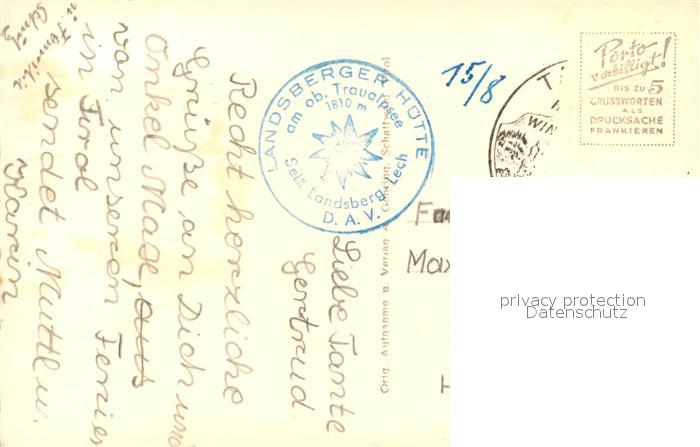 Liebe Tante
Gertrud
Recht herzliche
Grüße an Dich und
Onkel Maxe, aus
von unseren Ferien
in Tirol
sendet Mutti u.
Karin
u. Familie
LANDSBERGER HÜTTE
am ob. Traualpsee
1810 m
Sekt. Landsberg-Lech
D. A. V.
15/8
Porto
verbilligt!
BIS ZU 5
GRUSSWORTEN
ALS
DRUCKSACHE
FRANKIEREN
WIN
Orig. Aufnahme u. Verlag A.
Max
privacy protection
Datenschutz